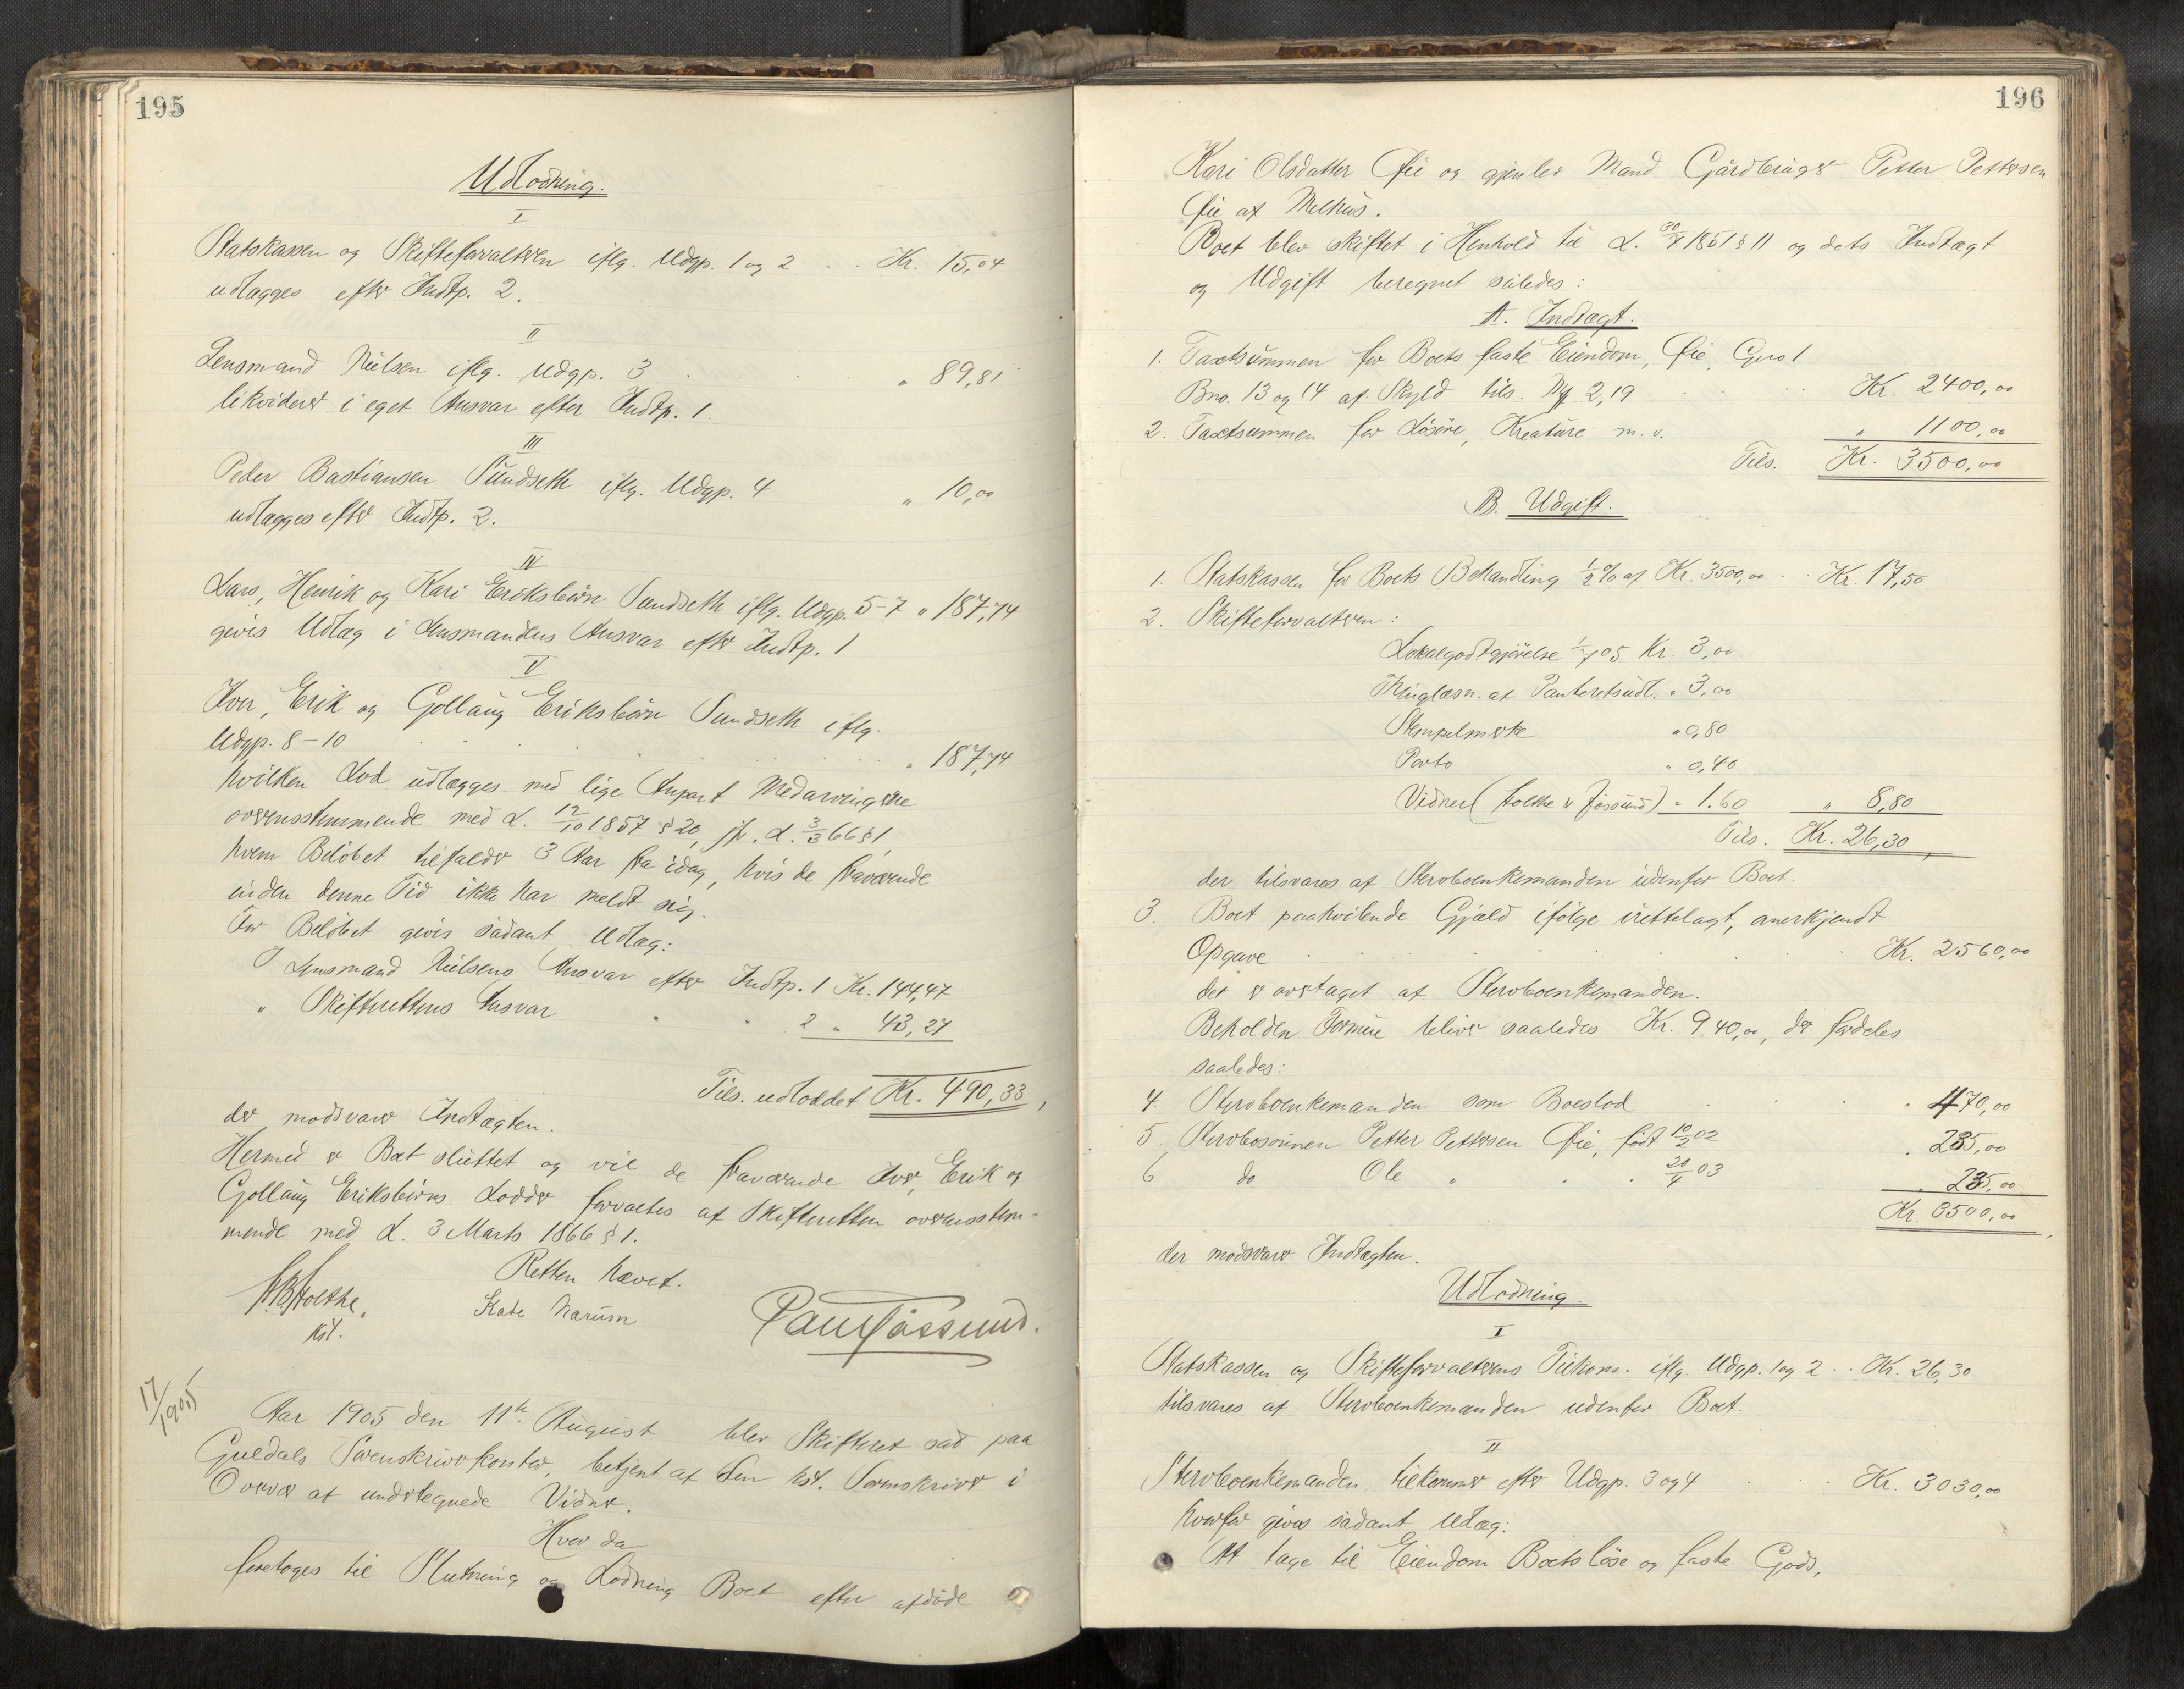 195
Udlodning.
I
Statskassen og Skifteforvalteren iflg. Udgp. 1 og 2 . . Kr. 15,04
udlægges efter Indtp. 2.
II
Lensmand Nielsen iflg. Udgp. 3 . . . „ 89,81
likviderer i eget Ansvar efter Indtp. 1.
III
Peder Bastiansen Sundseth iflg. Udgp. 4 „ 10,00
udlægges efter Indtp. 2.
IV
Lars, Henrik og Kari Eriksbørn Sundseth iflg. Udgp. 5-7 „ 187,74
givis Udlæg i Lensmandens Ansvar efter Indtp. 1
V
Iver, Erik og Gollaug Eriksbørn Sundseth iflg.
Udgp. 8-10 . . . „ 187,74
hvilken Lod udlægges med lige Anpart Medarvingerne
overensstemmende med L. 12/10 1857 § 20, jfr. L. 3/3 66 § 1,
hvem Beløbet tilfalder 3 Aar fra idag, hvis de fraværende
inden denne Tid ikke har meldt sig.
For Beløbet givis sådant Udlæg:
I Lensmand Nielsens Ansvar efter Indtp. 1 Kr. 144,47
„ Skifterettens Ansvar „ „ 2 „ 43,27
Tils. udloddet Kr. 490,33,
der modsvarer Indtægten.
Hermed er Boet sluttet og vil de fraværende Iver, Erik og
Gollaug Eriksbørns Lodder forvaltes af Skifteretten overensstem-
mende med L. 3 Marts 1866 § 1.
Retten hævet.
Holthe,
kst.
Kate Narum
Paul Jøssund.
17/1905
Aar 1905 den 11te August blev Skifteret sat paa
Guldals Sorenskriverkontor, betjent af den kst. Sorenskriver i
Overvær af undertegnede Vidner.
Hvor da
foretoges til Slutning og Lodning Boet efter afdøde
196
Kari Olsdatter Øie og gjenlev. Mand Gårdbruger Petter Pettersen
Øie af Melhus.
Boet blev skiftet i Henhold til L. 30/7 1851 § 11 og dets Indtægt
og Udgift beregnet således:
A. Indtægt.
1. Taxtsummen for Boets faste Eiendom, Øie, Gno 1
Bno. 13 og 14 af Skyld tils. Mk 2,19 . . Kr. 2400,00
2. Taxtsummen for Løsøre, Kreature m. v. „ 1100,00
Tils. Kr. 3500,00
B. Udgift.
1. Statskassen for Boets Behandling 1/2 % af Kr. 3500,00 . . Kr. 17,50
2. Skifteforvalteren:
Lokalgodtgjørelse 1/7 05 Kr. 3,00
Thinglæsn. af Panteretsudl. „ 3,00
Stempelmerke „ 0,80
Porto „ 0,40
Vidner (Holthe & Jøssund) „ 1.60 „ 8,80
Tils. Kr. 26,30,
der tilsvares af Sterboenkemanden udenfor Boet.
3. Boet paahvilende Gjæld ifølge irettelagt, anerkjendt
Opgave . . . Kr. 2560,00
det er overtaget af Sterboenkemanden.
Beholden Formue bliver saaledes Kr. 940,00, der fordeles
saaledes:
4. Sterboenkemanden som Boeslod . . . „ 470,00
5. Sterbosønnen Petter Pettersen Øie, født 10/2 02 „ 235,00
6 do Ole „ . . 20/4 03 „ 235,00
Kr. 3500,00,
der modsvarer Indtægten.
Udlodning.
I
Statskassen og Skifteforvalterens Tilkom. iflg. Udgp. 1 og 2 . . Kr. 26,30
tilsvares af Sterboenkemanden udenfor Boet.
II
Sterboenkemanden tilkommer efter Udgp. 3 og 4 . . Kr. 3030,00
hvorfor givis sådant Udlæg:
At tage til Eiendom Boets løse og faste Gods,